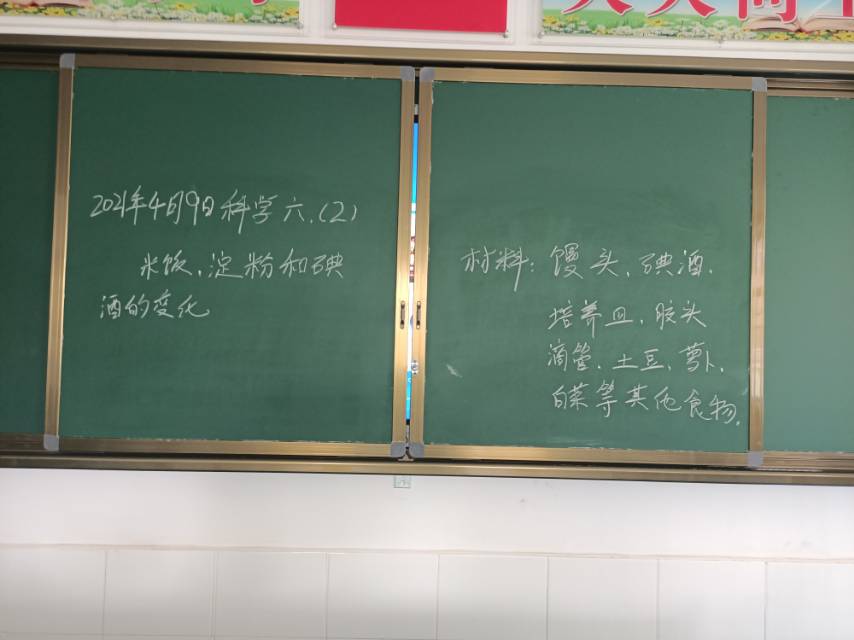 2021年4月9日科学六.(2)
米饭、淀粉和碘
酒的变化
材料：馒头、碘酒.
培养皿、胶头
滴管、土豆、萝卜、
白菜等其他食物.